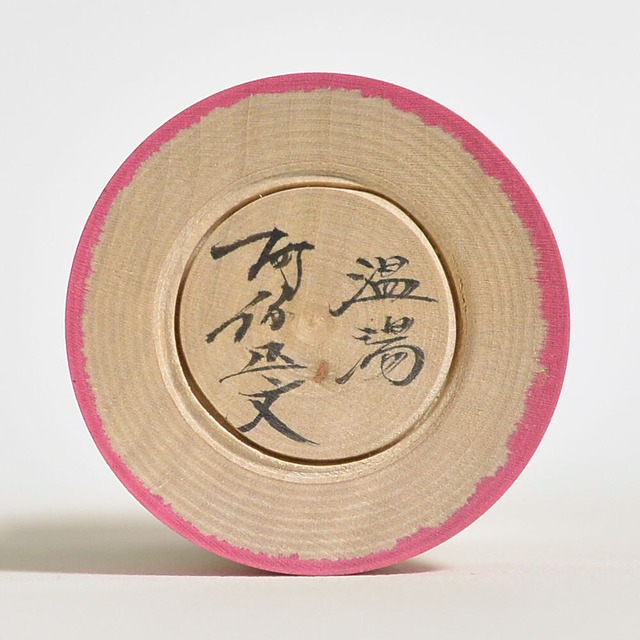 温湯
阿保正文